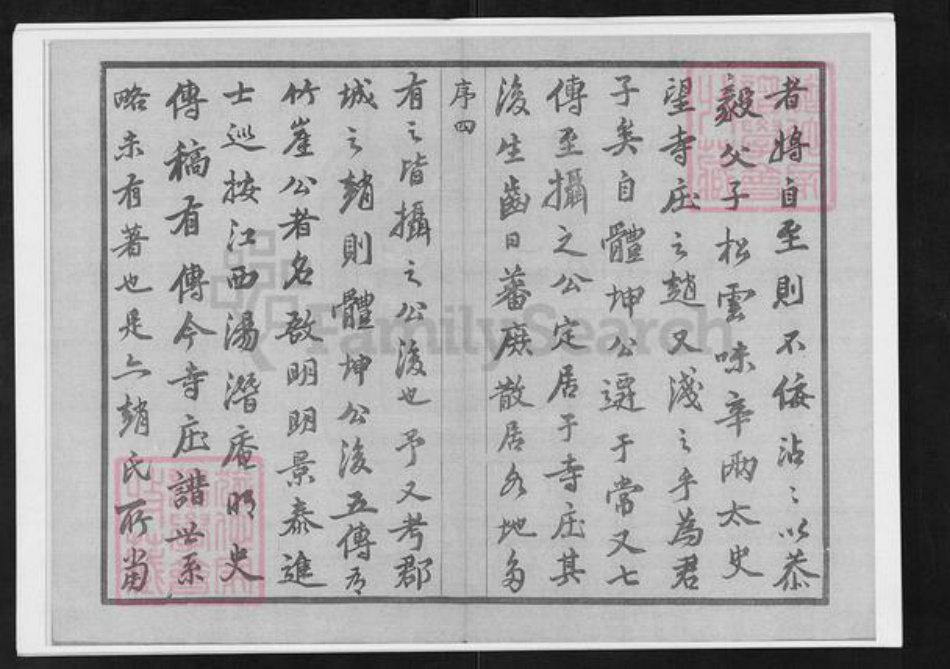 者將自至則不佞沾沾以恭
毅父子松雲味辛兩太史
望寺庄之趙又淺之乎為君
子矣自體坤公遷于常又七
傳至攝之公定居于寺庄其
後生齒日蕃庶散居各地多
序四
有之皆攝之公後也予又考郡
城之趙則體坤公後五傳有
竹崖公者名啟明明景泰進
士巡按江西湯潛庵明史
傳稿有傳今寺庄譜世系
略未有著也是亦趙氏所當
FamilySearch